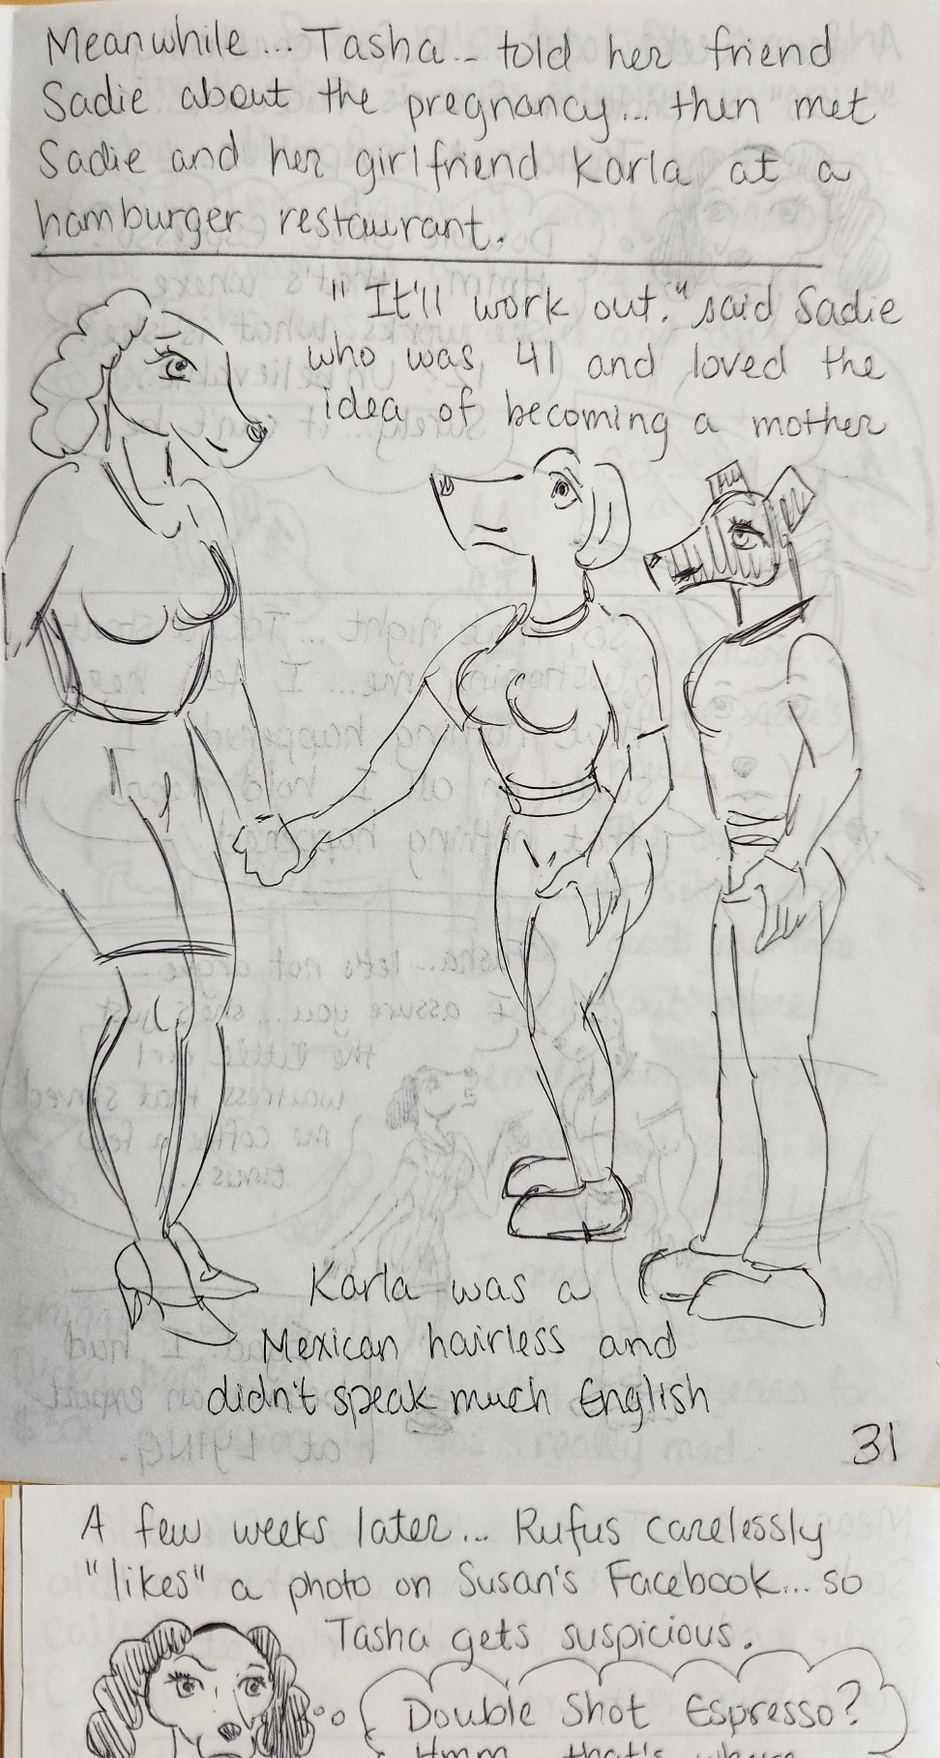 Meanwhile... Tasha... told her friend
Sadie about the pregnancy... then met
Sadie and her girlfriend Karla at a
hamburger restaurant.
"It'll work out." said Sadie
who was 41 and loved the
idea of becoming a mother
Karla was a
Mexican hairless and
didn't speak much English
31
A few weeks later... Rufus carelessly
"likes" a photo on Susan's Facebook... so
Tasha gets suspicious.
Double Shot Espresso?
Hmm... that's where